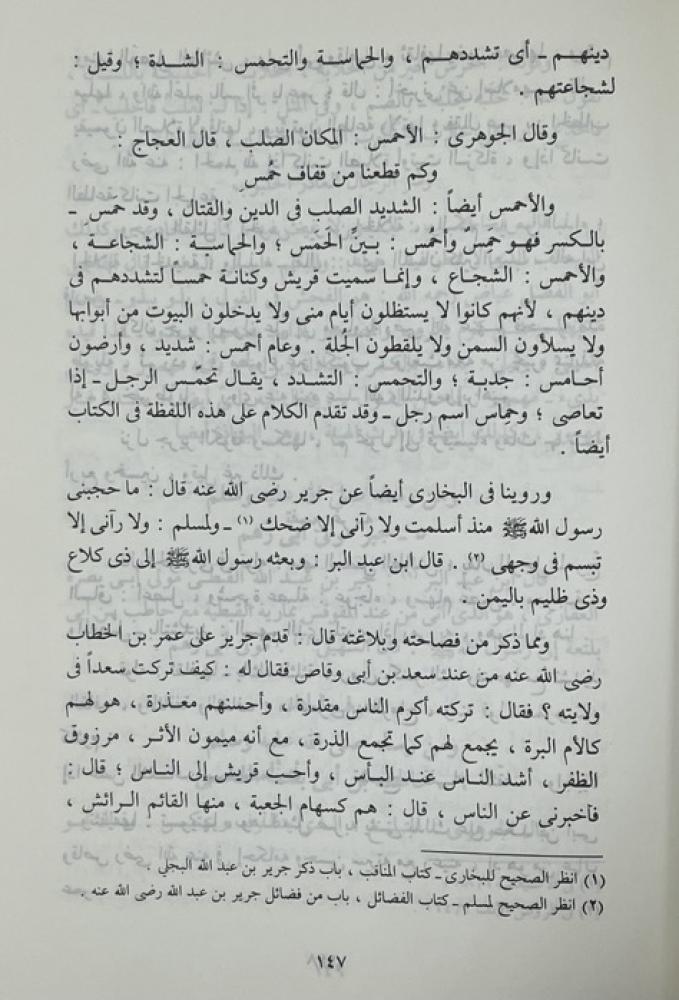 دينهم ـ أى تشددهم ، والحماسة والتحمس : الشدة ؛ وقيل :
لشجاعتهم .
وقال الجوهرى : الأحمس : المكان الصلب ، قال العجاج :
وكم قطعنا من قفاف حُمْسِ
والأحمس أيضاً : الشديد الصلب فى الدين والقتال ، وقد حمس ـ
بالكسر فهو حَمِسٌ وأحْمُس : بينِّ الحَمَس ؛ والحماسة : الشجاعة ،
والأحمس : الشجاع ، وإنما سميت قريش وكنانة حمساً لتشددهم فى
دينهم ، لأنهم كانوا لا يستظلون أيام منى ولا يدخلون البيوت من أبوابها
ولا يسلأون السمن ولا يلقطون الجُلة . وعام أحمس : شديد ، وأرضون
أحامس : جدبة ؛ والتحمس : التشدد ، يقال تحمّس الرجل ـ إذا
تعاصى ؛ وحماس اسم رجل ـ وقد تقدم الكلام على هذه اللفظة فى الكتاب
أيضاً .
وروينا فى البخارى أيضاً عن جرير رضى الله عنه قال : ما حجبنى
رسول الله ﷺ منذ أسلمت ولا رآنى إلا ضحك (١) ـ ولمسلم : ولا رآنى إلا
تبسم فى وجهى (٢) . قال ابن عبد البر : وبعثه رسول الله ﷺ إلى ذى كلاع
وذى ظليم باليمن .
ومما ذكر من فصاحته وبلاغته قال : قدم جرير على عمر بن الخطاب
رضى الله عنه من عند سعد بن أبى وقاص فقال له : كيف تركت سعداً فى
ولايته ؟ فقال : تركته أكرم الناس مقدرة ، وأحسنهم معذرة ، هو لهم
كالأم البرة ، يجمع لهم كما تجمع الذرة ، مع أنه ميمون الأثر ، مرزوق
الظفر ، أشد الناس عند البأس ، وأحب قريش إلى الناس ؛ قال :
فأخبرنى عن الناس ، قال : هم كسهام الجعبة ، منها القائم الرائش ،
(١) انظر الصحيح للبخارى ـ كتاب المناقب ، باب ذكر جرير بن عبد الله البجلي .
(٢) انظر الصحيح لمسلم ـ كتاب الفضائل ، باب من فضائل جرير بن عبد الله رضى الله عنه .
١٤٧